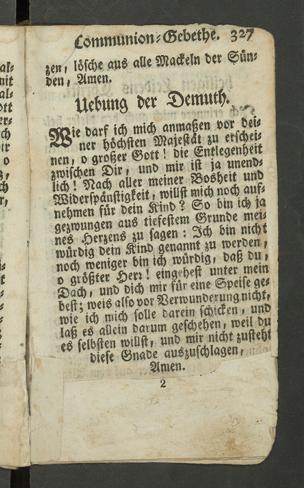 Communion-Gebethe. 327
zen, lösche aus alle Mackeln der Sün-
den, Amen.
Uebung der Demuth.
Wie darf ich mich anmaßen vor dei-
ner höchsten Majestät zu erschei-
nen, o großer Gott! die Entlegenheit
zwischen Dir, und mir ist ja unend-
lich! Nach aller meiner Bosheit und
Widerspänstigkeit, willst mich noch auf-
nehmen für dein Kind? So bin ich ja
gezwungen aus tiefestem Grunde mei-
nes Herzens zu sagen: Ich bin nicht
würdig dein Kind genannt zu werden,
noch weniger bin ich würdig, daß du,
o größter Herr! eingehest unter mein
Dach, und dich mir für eine Speise ge-
best; weis also vor Verwunderung nicht,
wie ich mich solle darein schicken, und
laß es allein darum geschehen, weil du
es selbsten willst, und mir nicht zusteht
diese Gnade auszuschlagen,
Amen.
2